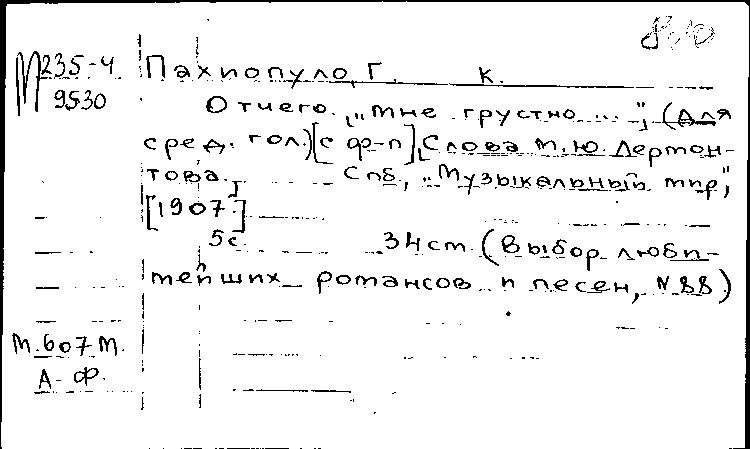 М235-4 Пахиопуло, Г. К.
9530
Отчего. „Мне грустно...", (Для
сред. гол.) [с ф-п]. Слова М.Ю. Лермон-
това. Спб, „Музыкальный мир",
[1907.]
5с. 34 см. (Выбор люби-
мейших романсов и песен, N 88)
М.607 М.
А-Ф.